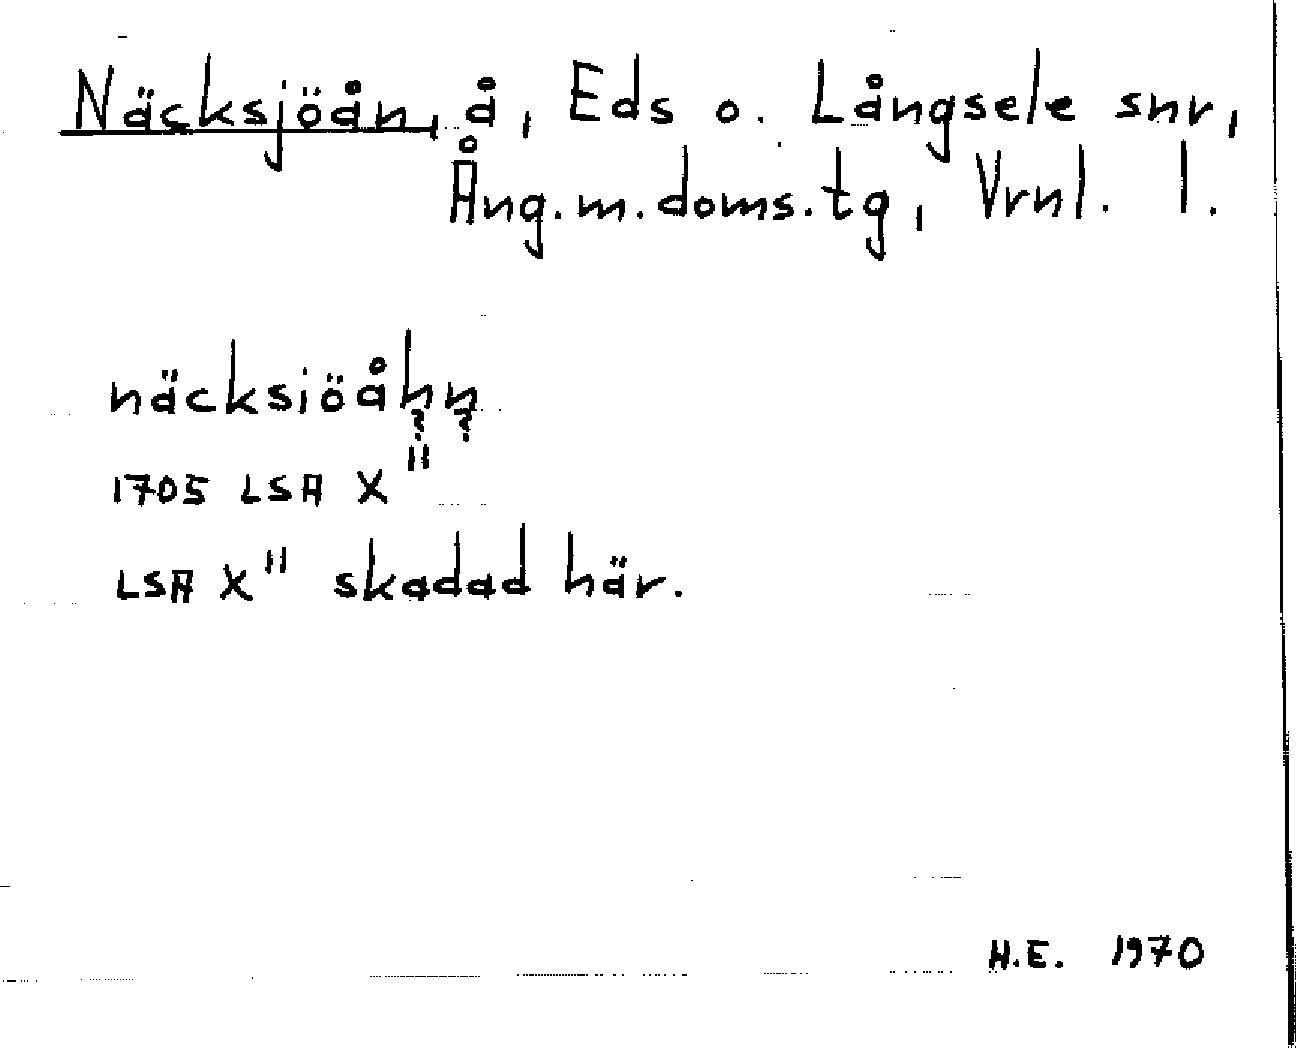 Näcksjöån, å, Eds o. Långsele snr,
Ång.m.doms.tg, Vrnl. l.
näcksiöåhn
? ?
1705 LSA X"
LSA X" skadad här.
H.E. 1970